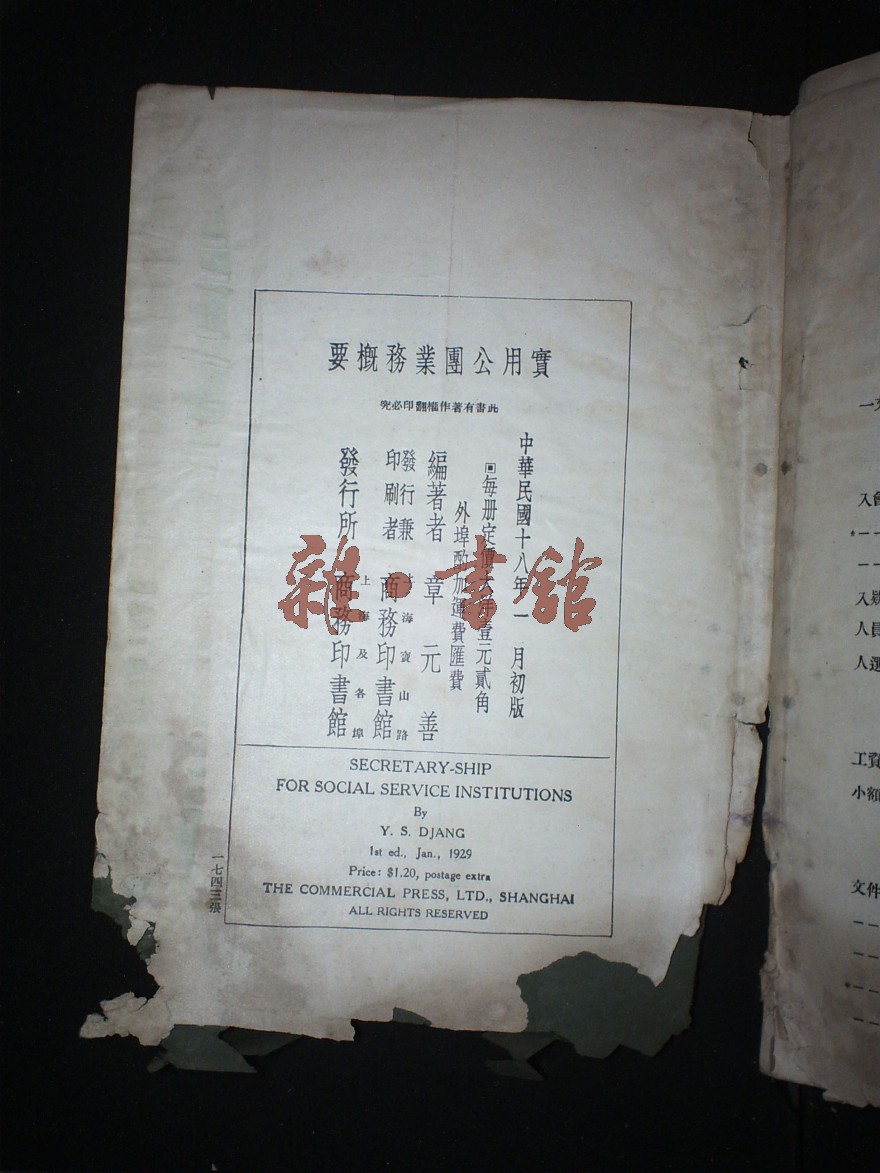 實用公團業務概要
此書有著作權翻印必究
中華民國十八年一月初版
每册定價大洋壹元貳角
外埠酌加運費匯費
編著者 章元善
發行兼印刷者 上海寶山路 商務印書館
發行所 上海及各埠 商務印書館
雜·書館
SECRETARY-SHIP
FOR SOCIAL SERVICE INSTITUTIONS
By
Y. S. DJANG
1st ed., Jan., 1929
Price: $1.20, postage extra
THE COMMERCIAL PRESS, LTD., SHANGHAI
ALL RIGHTS RESERVED
一七四三張
入會
人員
人選
工資
小額
文件